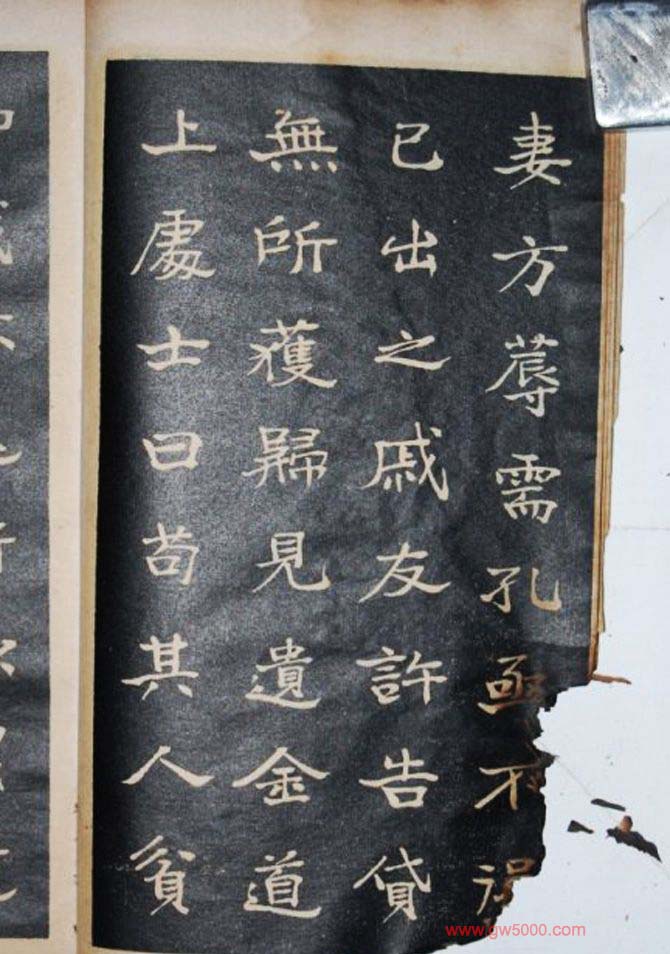 妻方蓐需孔亟不得
已出之戚友許告貸
無所獲歸見遺金道
上處士曰苟其人貧
www.gw5000.com